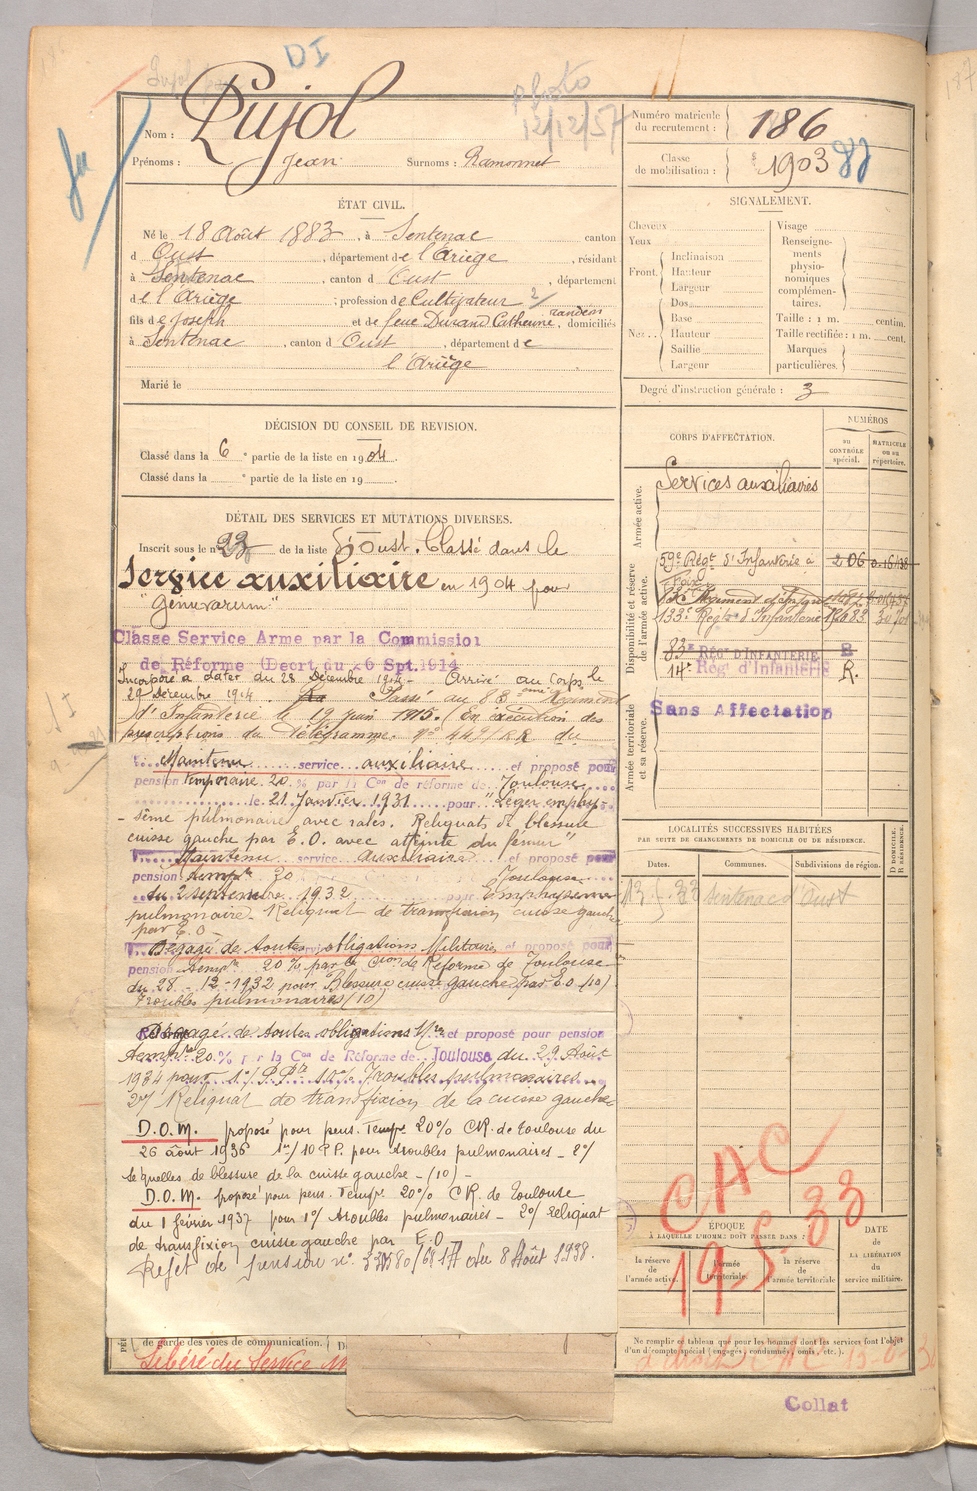 DI
Photo
12/12/57
Nom : Pujol
Prénoms : Jean Surnoms : Ramonnet
Numéro matricule du recrutement : 186
Classe de mobilisation : 1903
ÉTAT CIVIL.
Né le 18 Août 1883, à Sentenac canton
d Oust, département de l'Ariège, résidant
à Sentenac, canton d'Oust, département
de l'Ariège ; profession de Cultivateur
fils de Joseph et de feue Durand Catherine, domiciliés
à Sentenac, canton d Oust, département de
l'Ariège
Marié le
SIGNALEMENT.
Cheveux
Yeux
Front. Inclinaison
Hauteur
Largeur
Nez. Dos
Base
Hauteur
Saillie
Largeur
Visage
Renseigne-
ments
physio-
nomiques
complémen-
taires.
Taille : 1 m. centim.
Taille rectifiée : 1 m. cent.
Marques
particulières.
Degré d'instruction générale : 3
DÉCISION DU CONSEIL DE REVISION.
Classé dans la 6e partie de la liste en 1904.
Classé dans la e partie de la liste en 19
DÉTAIL DES SERVICES ET MUTATIONS DIVERSES.
Inscrit sous le n° 23 de la liste d'Oust. Classé dans le
Service auxiliaire en 1904 pour
"Genuvarum"
Classe Service Arme par la Commission
de Réforme (Decrt du 26 Spt. 1914
Incorporé à dater du 28 Décembre 1914. Arrivé au corps le
29 Décembre 1914. Passé au 83eme Régiment
d'Infanterie le 19 juin 1915. (En exécution des
prescriptions du Télégramme. N° 449/RR du
Maintenu service auxiliaire et proposé pour
pension temporaire 20 % par la Con de réforme de Toulouse
le 21 Janvier 1931 pour "Léger emphy-
-sème pulmonaire avec rales. Reliquats de blessure
cuisse gauche par E.O. avec atteinte du fémur"
Maintenu service auxiliaire et proposé pour
pension temp° 20 Toulouse
du 2 septembre 1932 pour Emphysème
pulmonaire. Reliquat de transfixion cuisse gauche
par E.O.
Dégagé de toutes obligations Militaires et proposé pour
pension temp° 20% par la Cion de Réforme de Toulouse
du 28-12-1932 pour Blessure cuisse gauche par E.O (10)
Troubles pulmonaires (10)
Dégagé de toutes obligations Mres et proposé pour pension
temp° 20 % par la Con de Réforme de Toulouse du 29 Août
1934 pour 1°/ 10% Troubles pulmonaires
2°/ Reliquat de transfixion de la cuisse gauche
D.O.M. proposé pour pens. Temp° 20% CR. de Toulouse du
26 août 1936 1°/ 10 P.P. pour troubles pulmonaires – 2°/
Séquelles de blessure de la cuisse gauche – (10) –
D.O.M. proposé pour pens. Temp° 20% CR. de Toulouse
du 1 février 1937 pour 1°/ troubles pulmonaires – 2°/ reliquat
de transfixion cuisse gauche par E.O
Rejet de pension n° du 8 Août 1938.
de garde des voies de communication.
Libéré du Service
CORPS D'AFFECTATION.
NUMÉROS
AU CONTRÔLE spécial.
MATRICULE OU AU répertoire.
Armée active.
Services auxiliaires
Disponibilité et réserve de l'armée active.
59e Régt d'Infanterie à 206
Foix
133e Régt d'Infanterie
83e RÉGt D'INFANTERIE
14e Régt d'Infanterie R.
Armée territoriale et sa réserve.
Sans Affectation
LOCALITÉS SUCCESSIVES HABITÉES
PAR SUITE DE CHANGEMENTS DE DOMICILE OU DE RÉSIDENCE.
Dates. Communes. Subdivisions de région. D DOMICILE. R RÉSIDENCE.
Sentenac d'Oust
CAC
19-5-33
ÉPOQUE
À LAQUELLE L'HOMME DOIT PASSER DANS :
la réserve de l'armée active.
l'armée territoriale.
la réserve de l'armée territoriale
DATE
de
LA LIBÉRATION
du
service militaire.
Ne remplir ce tableau que pour les hommes dont les services font l'objet
d'un décompte spécial (engagés, condamnés, omis, etc.).
Collat
187